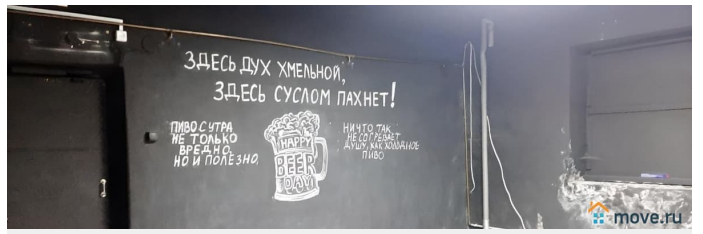 ЗДЕСЬ ДУХ ХМЕЛЬНОЙ,
ЗДЕСЬ СУСЛОМ ПАХНЕТ!
ПИВО С УТРА
НЕ ТОЛЬКО
ВРЕДНО,
НО И ПОЛЕЗНО.
HAPPY
BEER
DAY!
НИЧТО ТАК
НЕ СОГРЕВАЕТ
ДУШУ, КАК ХОЛОДНОЕ
ПИВО
move.ru